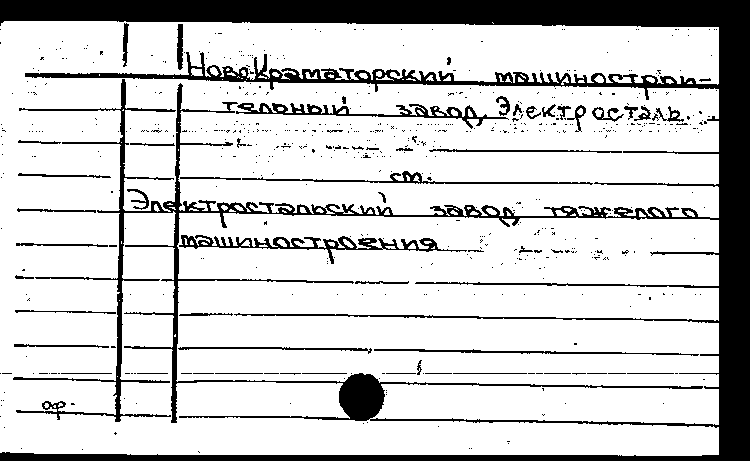 НовоКраматорский машинострои-
тельный завод, Электросталь.
см.
Электростальский завод тяжелого
машиностроения
оф.